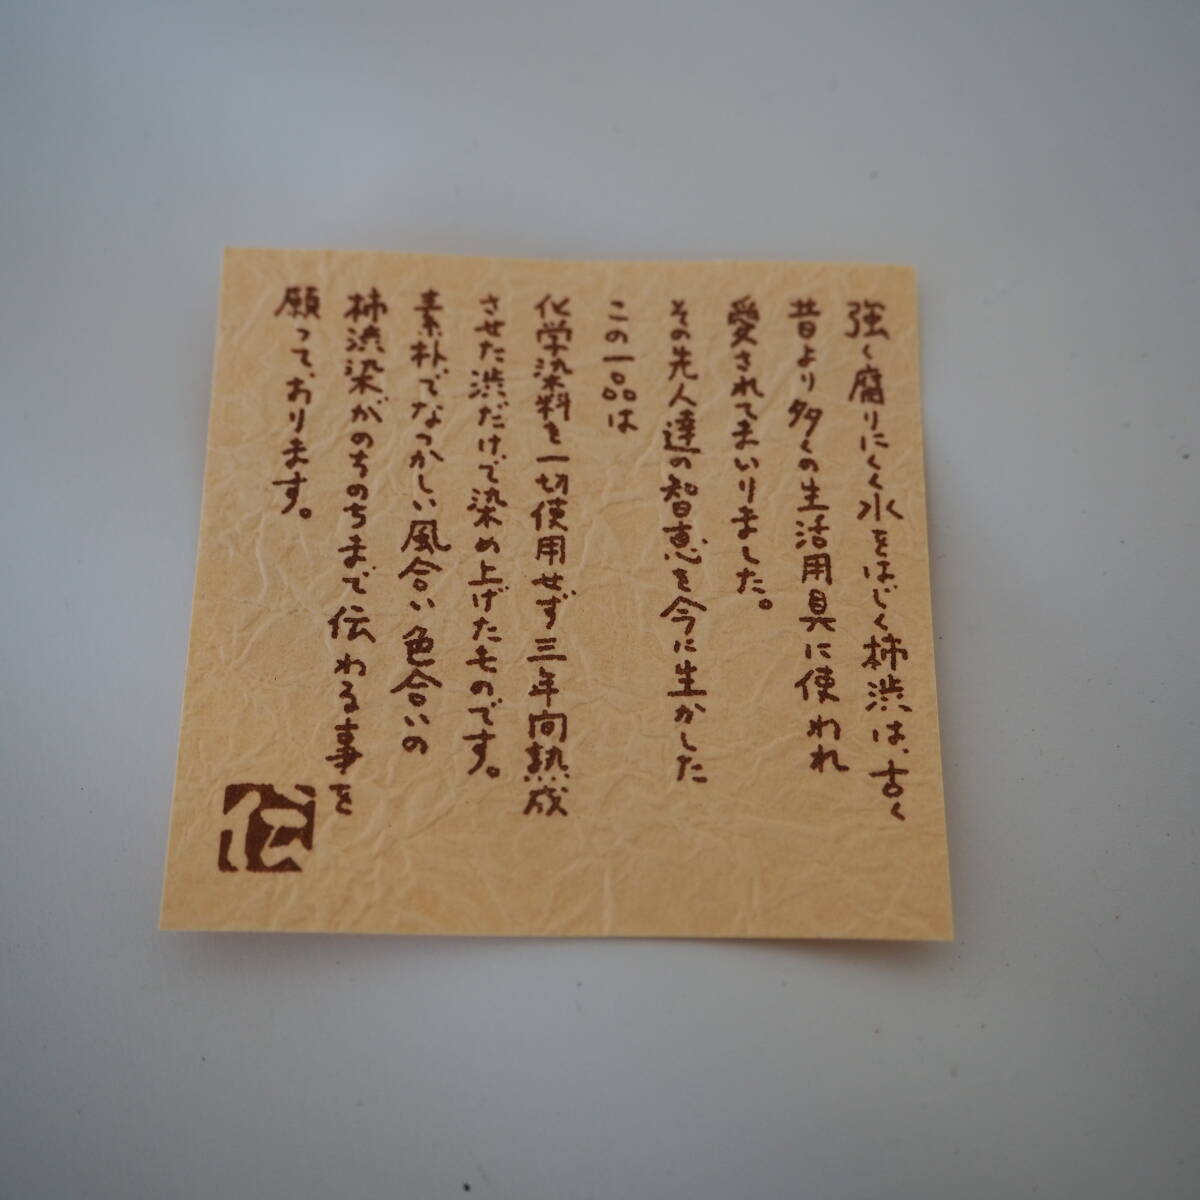 強く腐りにくく水をはじく柿渋は、古く
昔より多くの生活用具に使われ
愛されてまいりました。
その先人達の智恵を今に生かした
この一品は
化学染料を一切使用せず三年間熟成
させた渋だけで染め上げたものです。
素朴でなつかしい風合い色合いの
柿渋染がのちのちまで伝わる事を
願って、おります。